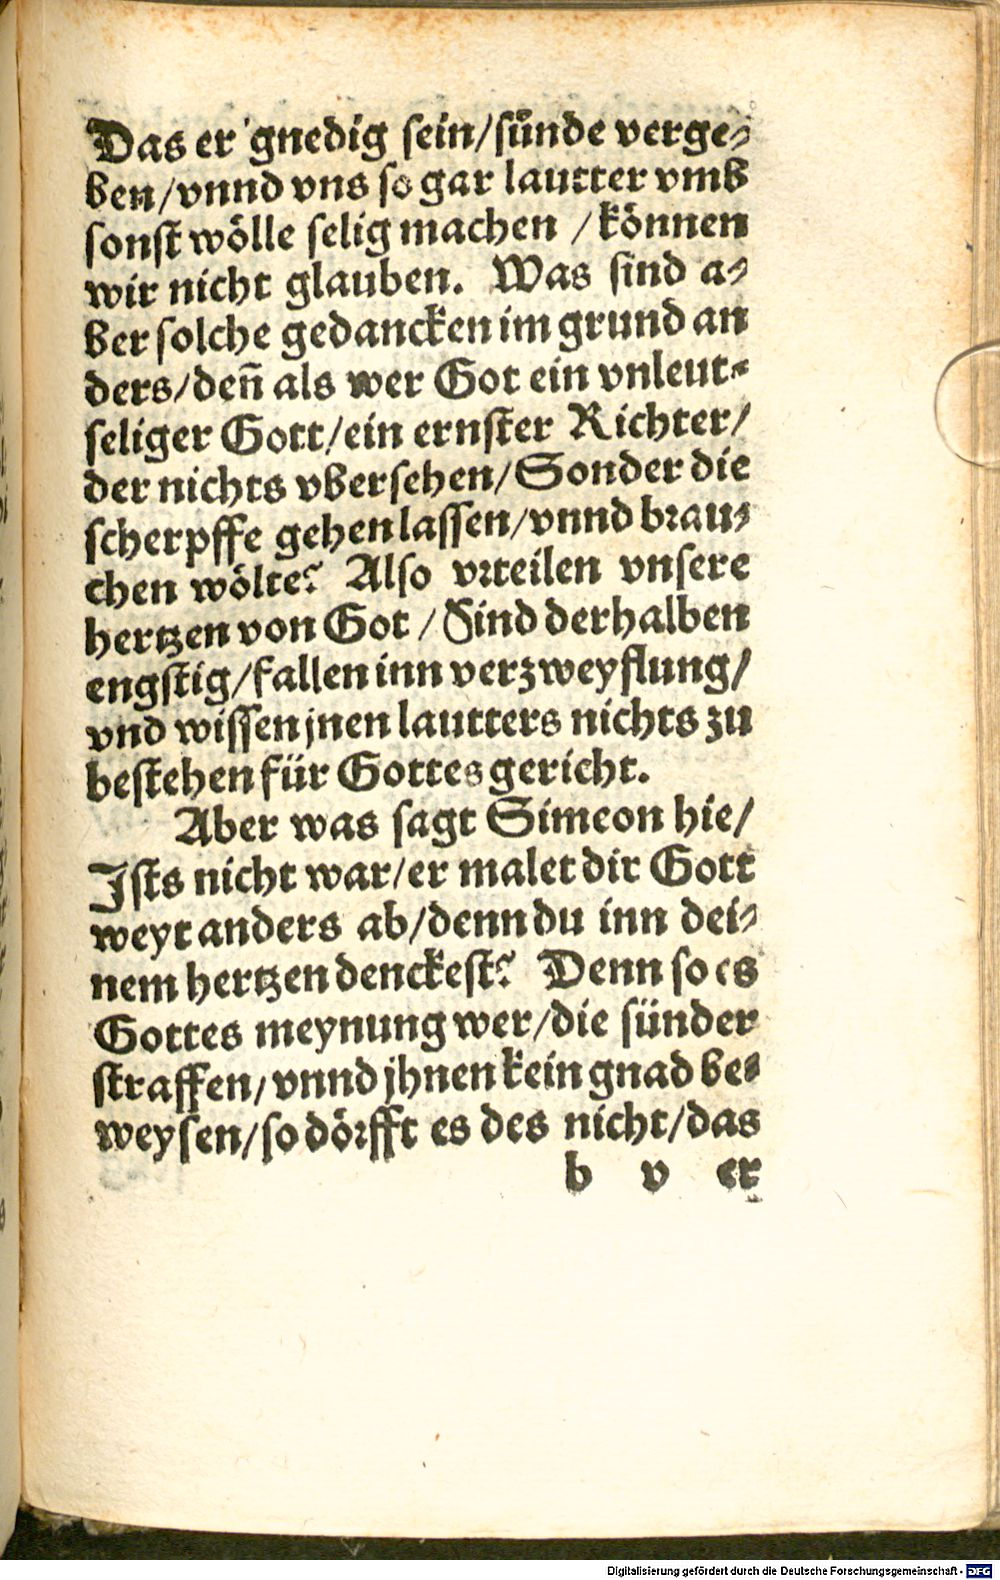 Das er gnedig sein/sünde verge-
ben/vnnd vns so gar lautter vmb
sonst wölle selig machen /können
wir nicht glauben. Was sind a-
ber solche gedancken im grund an
ders/deñ als wer Got ein vnleut-
seliger Gott/ein ernster Richter/
der nichts vbersehen/Sonder die
scherpffe gehen lassen/vnnd brau-
chen wölte? Also vrteilen vnsere
hertzen von Got /Sind derhalben
engstig/fallen inn verzweyflung/
vnd wissen jnen lautters nichts zu
bestehen für Gottes gericht.
Aber was sagt Simeon hie/
Jsts nicht war/er malet dir Gott
weyt anders ab/denn du inn dei-
nem hertzen denckest? Denn so es
Gottes meynung wer/die sünder
straffen/vnnd jhnen kein gnad be-
weysen/so dörfft es des nicht/das
b v er
Digitalisierung gefördert durch die Deutsche Forschungsgemeinschaft - DFG